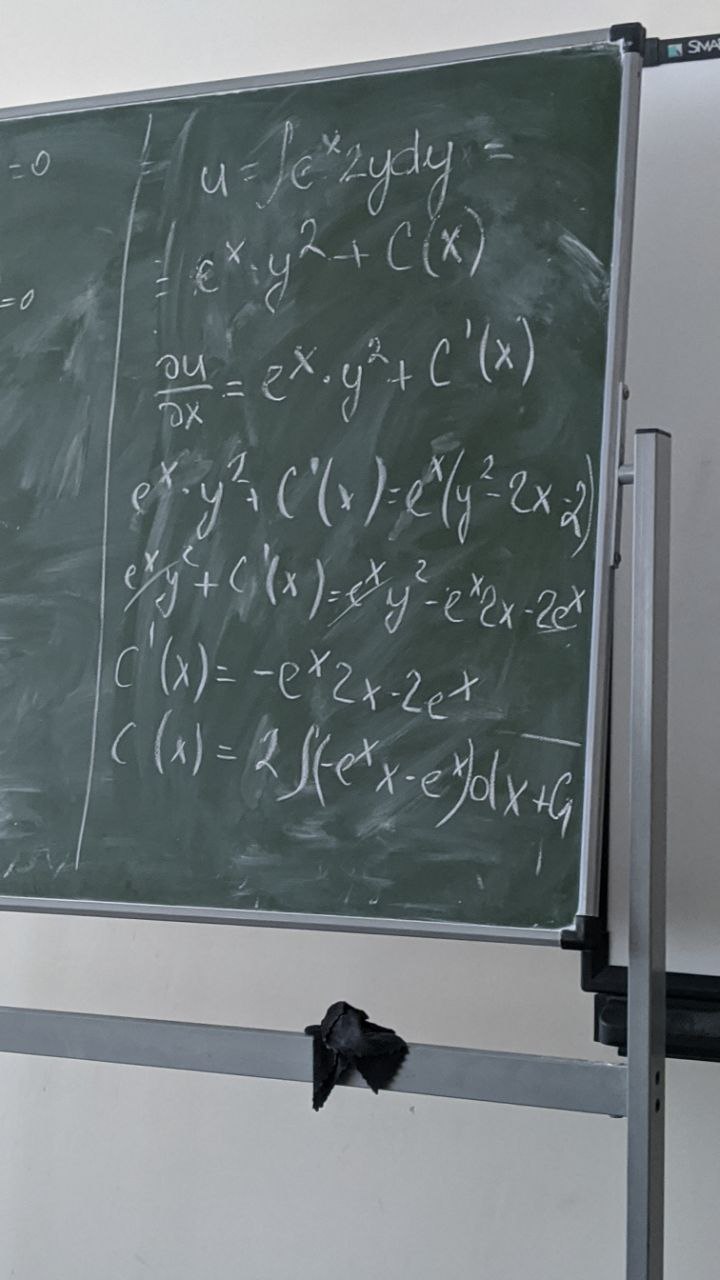 = 0
= 0
u = ∫e^x 2ydy =
= e^x · y^2 + C(x)
∂u/∂x = e^x · y^2 + C'(x)
e^x · y^2 + C'(x) = e^x(y^2 - 2x - 2)
e^x y^2 + C'(x) = e^x y^2 - e^x 2x - 2e^x
C'(x) = -e^x 2x - 2e^x
C(x) = 2∫(-e^x x - e^x)dx + C₁
SMA